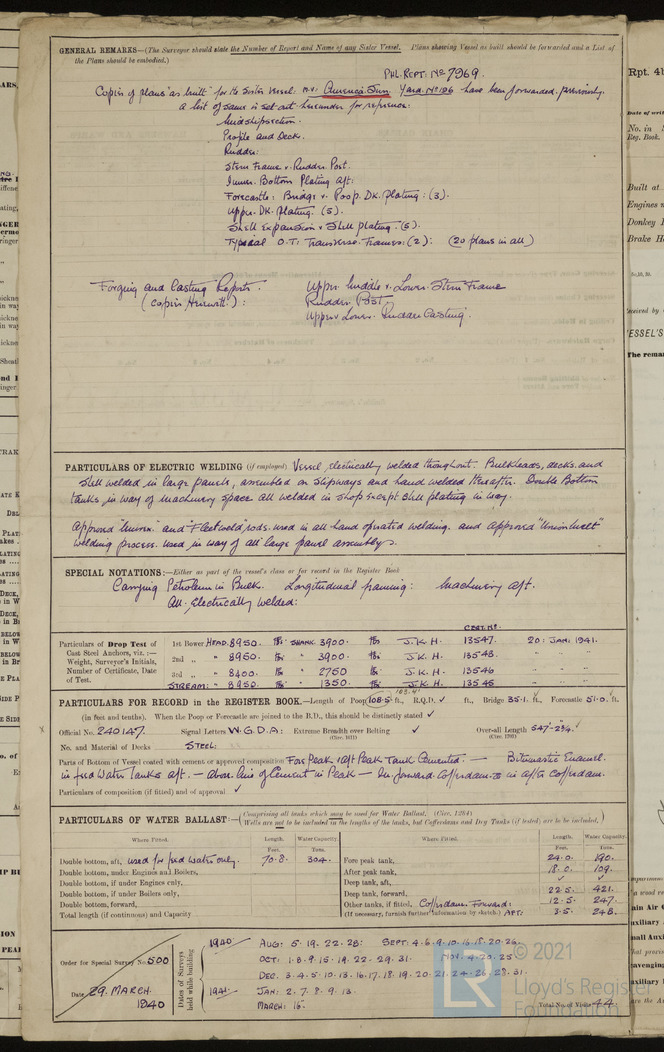 GENERAL REMARKS—(The Surveyor should state the Number of Report and Name of any Sister Vessel. Plans showing Vessel as built should be forwarded and a List of
the Plans should be embodied.)
PHL. REPT. No 7969.
Copies of plans "as built" for its Sister Vessel: m.v. America Sun Yard No 186 have been forwarded previously.
a list of same is set out hereunder for reference:
Midship section.
Profile and Deck.
Rudder.
Stern Frame & Rudder Post.
Inner Bottom Plating Aft:
Forecastle: Bridge & Poop Dk. Plating: (3).
Upper Dk. Plating. (5).
Shell Expansion & Shell Plating. (5).
Typical O.T. Transverse Frames: (2): (20 plans in all)
Forging and Casting Reports.
(Copies Herewith):
Upper Middle & Lower Stern Frame
Rudder Post.
Upper & Lower Rudder Casting.
PARTICULARS OF ELECTRIC WELDING (if employed) Vessel electrically welded throughout. Bulkheads, decks and
shell welded in large panels, assembled on slipways and hand welded thereafter. Double Bottom
tanks in way of machinery space all welded in shop except shell plating in way.
Approved and "Fleetweld" rods used in all hand operated welding and approved "Unionmelt"
welding process used in way of all large panel assemblys.
SPECIAL NOTATIONS:—Either as part of the vessel's class or for record in the Register Book
Carrying Petroleum in Bulk. Longitudinal framing: Machinery aft.
All Electrically Welded:
CERT. No.
Particulars of Drop Test of
Cast Steel Anchors, viz. :—
Weight, Surveyor's Initials,
Number of Certificate, Date
of Test.
1st Bower HEAD. 8950. lbs SHANK. 3900. lbs J.K.H. 13547. 20: JAN. 1941.
2nd „ " 8950. lbs " 3900 lbs J.K.H. 13548. " " "
3rd „ " 8400. lbs " 2750 lbs J.K.H. 13546 " " "
STREAM: " lbs " 1350. lbs J.K.H. 13545 " " "
PARTICULARS FOR RECORD in the REGISTER BOOK.—Length of Poop 108.5 ft., R.Q.D. ✓ ft., Bridge 35.1 ft. Forecastle 51.0 ft.
(in feet and tenths). When the Poop or Forecastle are joined to the B.D., this should be distinctly stated ✓
Official No. 240147. Signal Letters W.G.D.A: Extreme Breadth over Belting ✓ Over-all Length 547-2¾.
No. and Material of Decks STEEL:
Parts of Bottom of Vessel coated with cement or approved composition Fore Peak & Aft Peak Tank Cemented. — Bitumastic Enamel
in feed Water Tanks aft. — above line of Cement in Peak — in forward Cofferdam & in after cofferdam.
Particulars of composition (if fitted) and of approval ✓
PARTICULARS OF WATER BALLAST:—(Comprising all tanks which may be used for Water Ballast. (Circ. 1284)
Wells are not to be included in the lengths of the tanks, but Cofferdams and Dry Tanks (if tested) are to be included.)
Where Fitted. Length. Water Capacity. Where Fitted. Length. Water Capacity.
Feet. Tons. Feet. Tons.
Double bottom, aft, used for feed water only. 70.8. 304. Fore peak tank, 24.0. 190.
Double bottom, under Engines and Boilers, After peak tank, 18.0. 109.
Double bottom, if under Engines only, Deep tank, aft, ✓ ✓
Double bottom, if under Boilers only, Deep tank, forward, 22.5. 421.
Double bottom, forward, Other tanks, if fitted, Cofferdam Forward: 12.5. 247.
Total length (if continuous) and Capacity (If necessary, furnish further information by sketch.) AFT: 3.5. 248.
Order for Special Survey No. 500
Date 29. MARCH. 1940
Dates of Surveys held while building
1940 AUG: 5. 19. 22. 28: SEPT. 4. 6. 9. 10. 16. 18. 20. 26.
OCT: 1. 8. 9. 15. 19. 22. 29. 31. NOV. 4. 20. 25.
DEC. 3. 4. 5. 10. 13. 16. 17. 18. 19. 20. 21. 24. 26. 28. 31.
1941 JAN: 2. 7. 8. 9. 13.
MARCH: 15.
Total No. of Visits 44.
© 2021
Lloyd's Register
Foundation
LR
Rpt. 4b